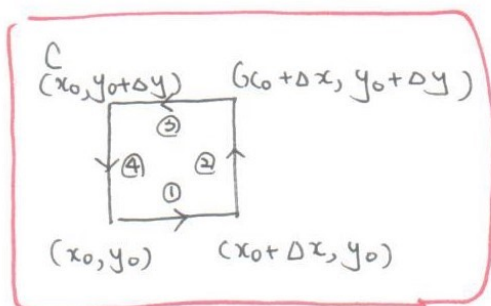 C
(x₀, y₀+Δy) (x₀+Δx, y₀+Δy)
③
④ ②
①
(x₀, y₀) (x₀+Δx, y₀)